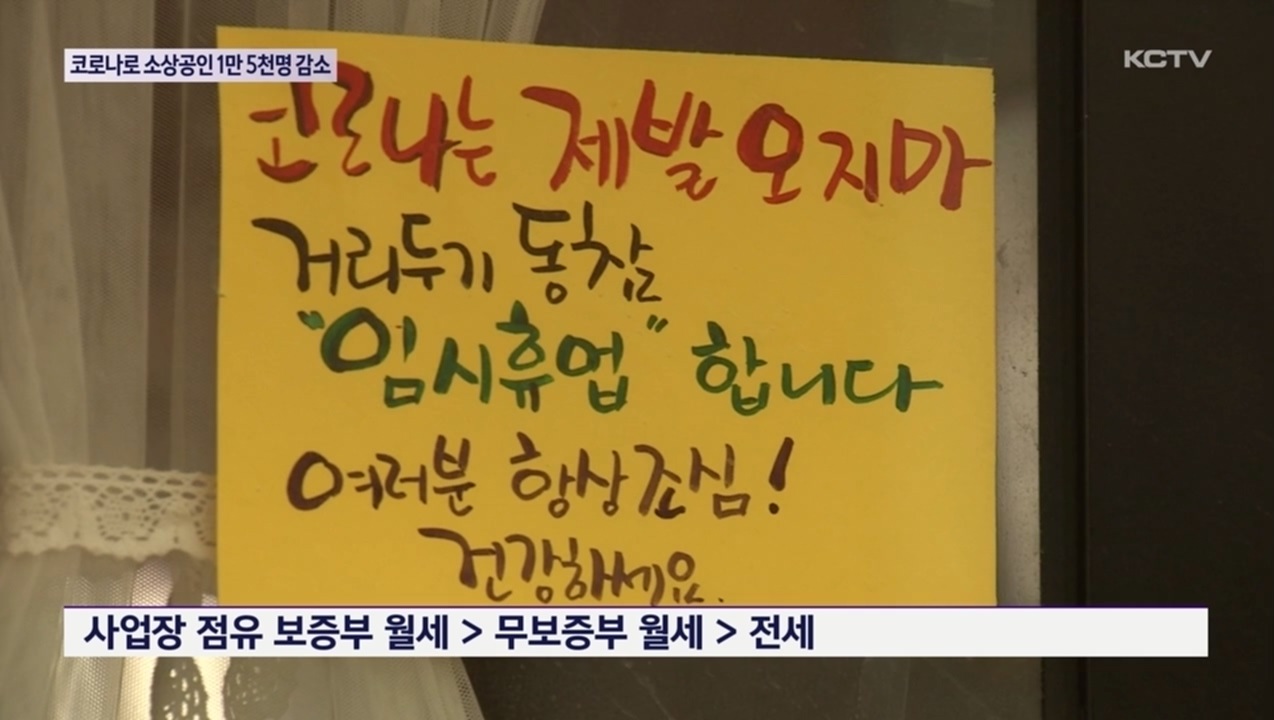 코로나로 소상공인 1만 5천명 감소
KCTV
코로나는 제발 오지마
거리두기 동참
"임시휴업" 합니다
여러분 항상조심!
건강하세요.
사업장 점유 보증부 월세 > 무보증부 월세 > 전세